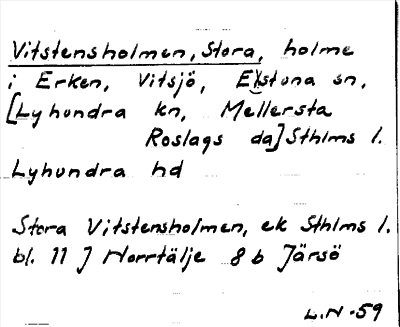 Vitstensholmen, Stora, holme
i Erken, Vitsjö, Estuna sn,
[Lyhundra kn, Mellersta
Roslags da] Sthlms l.
Lyhundra hd
Stora Vitstensholmen, ek Sthlms l.
bl. 11 J Norrtälje 8 b Järsö
L.N-59